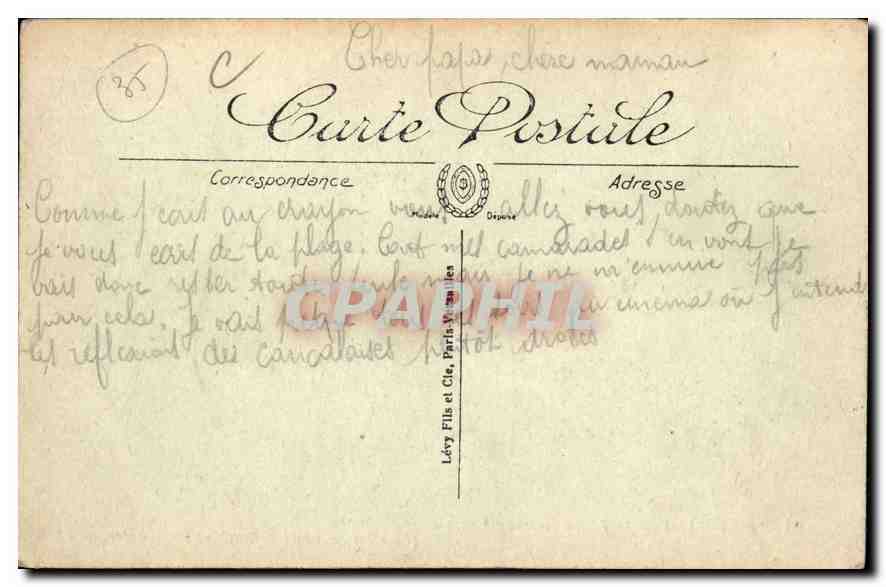 35
Cher papa, chère maman
Carte Postale
Correspondance
Adresse
Modèle Déposé
Comme j'ecris au crayon vous allez vous doutez que
je vous ecris de la plage. mes camarades s'en vont je
vais donc rester toute seule mais je ne m'ennuie pas
pour cela. Je vais au cinema où j'entends
les reflexions des cancalaises plutôt droles
CPAPHIL
Lévy Fils et Cie, Paris-Versailles